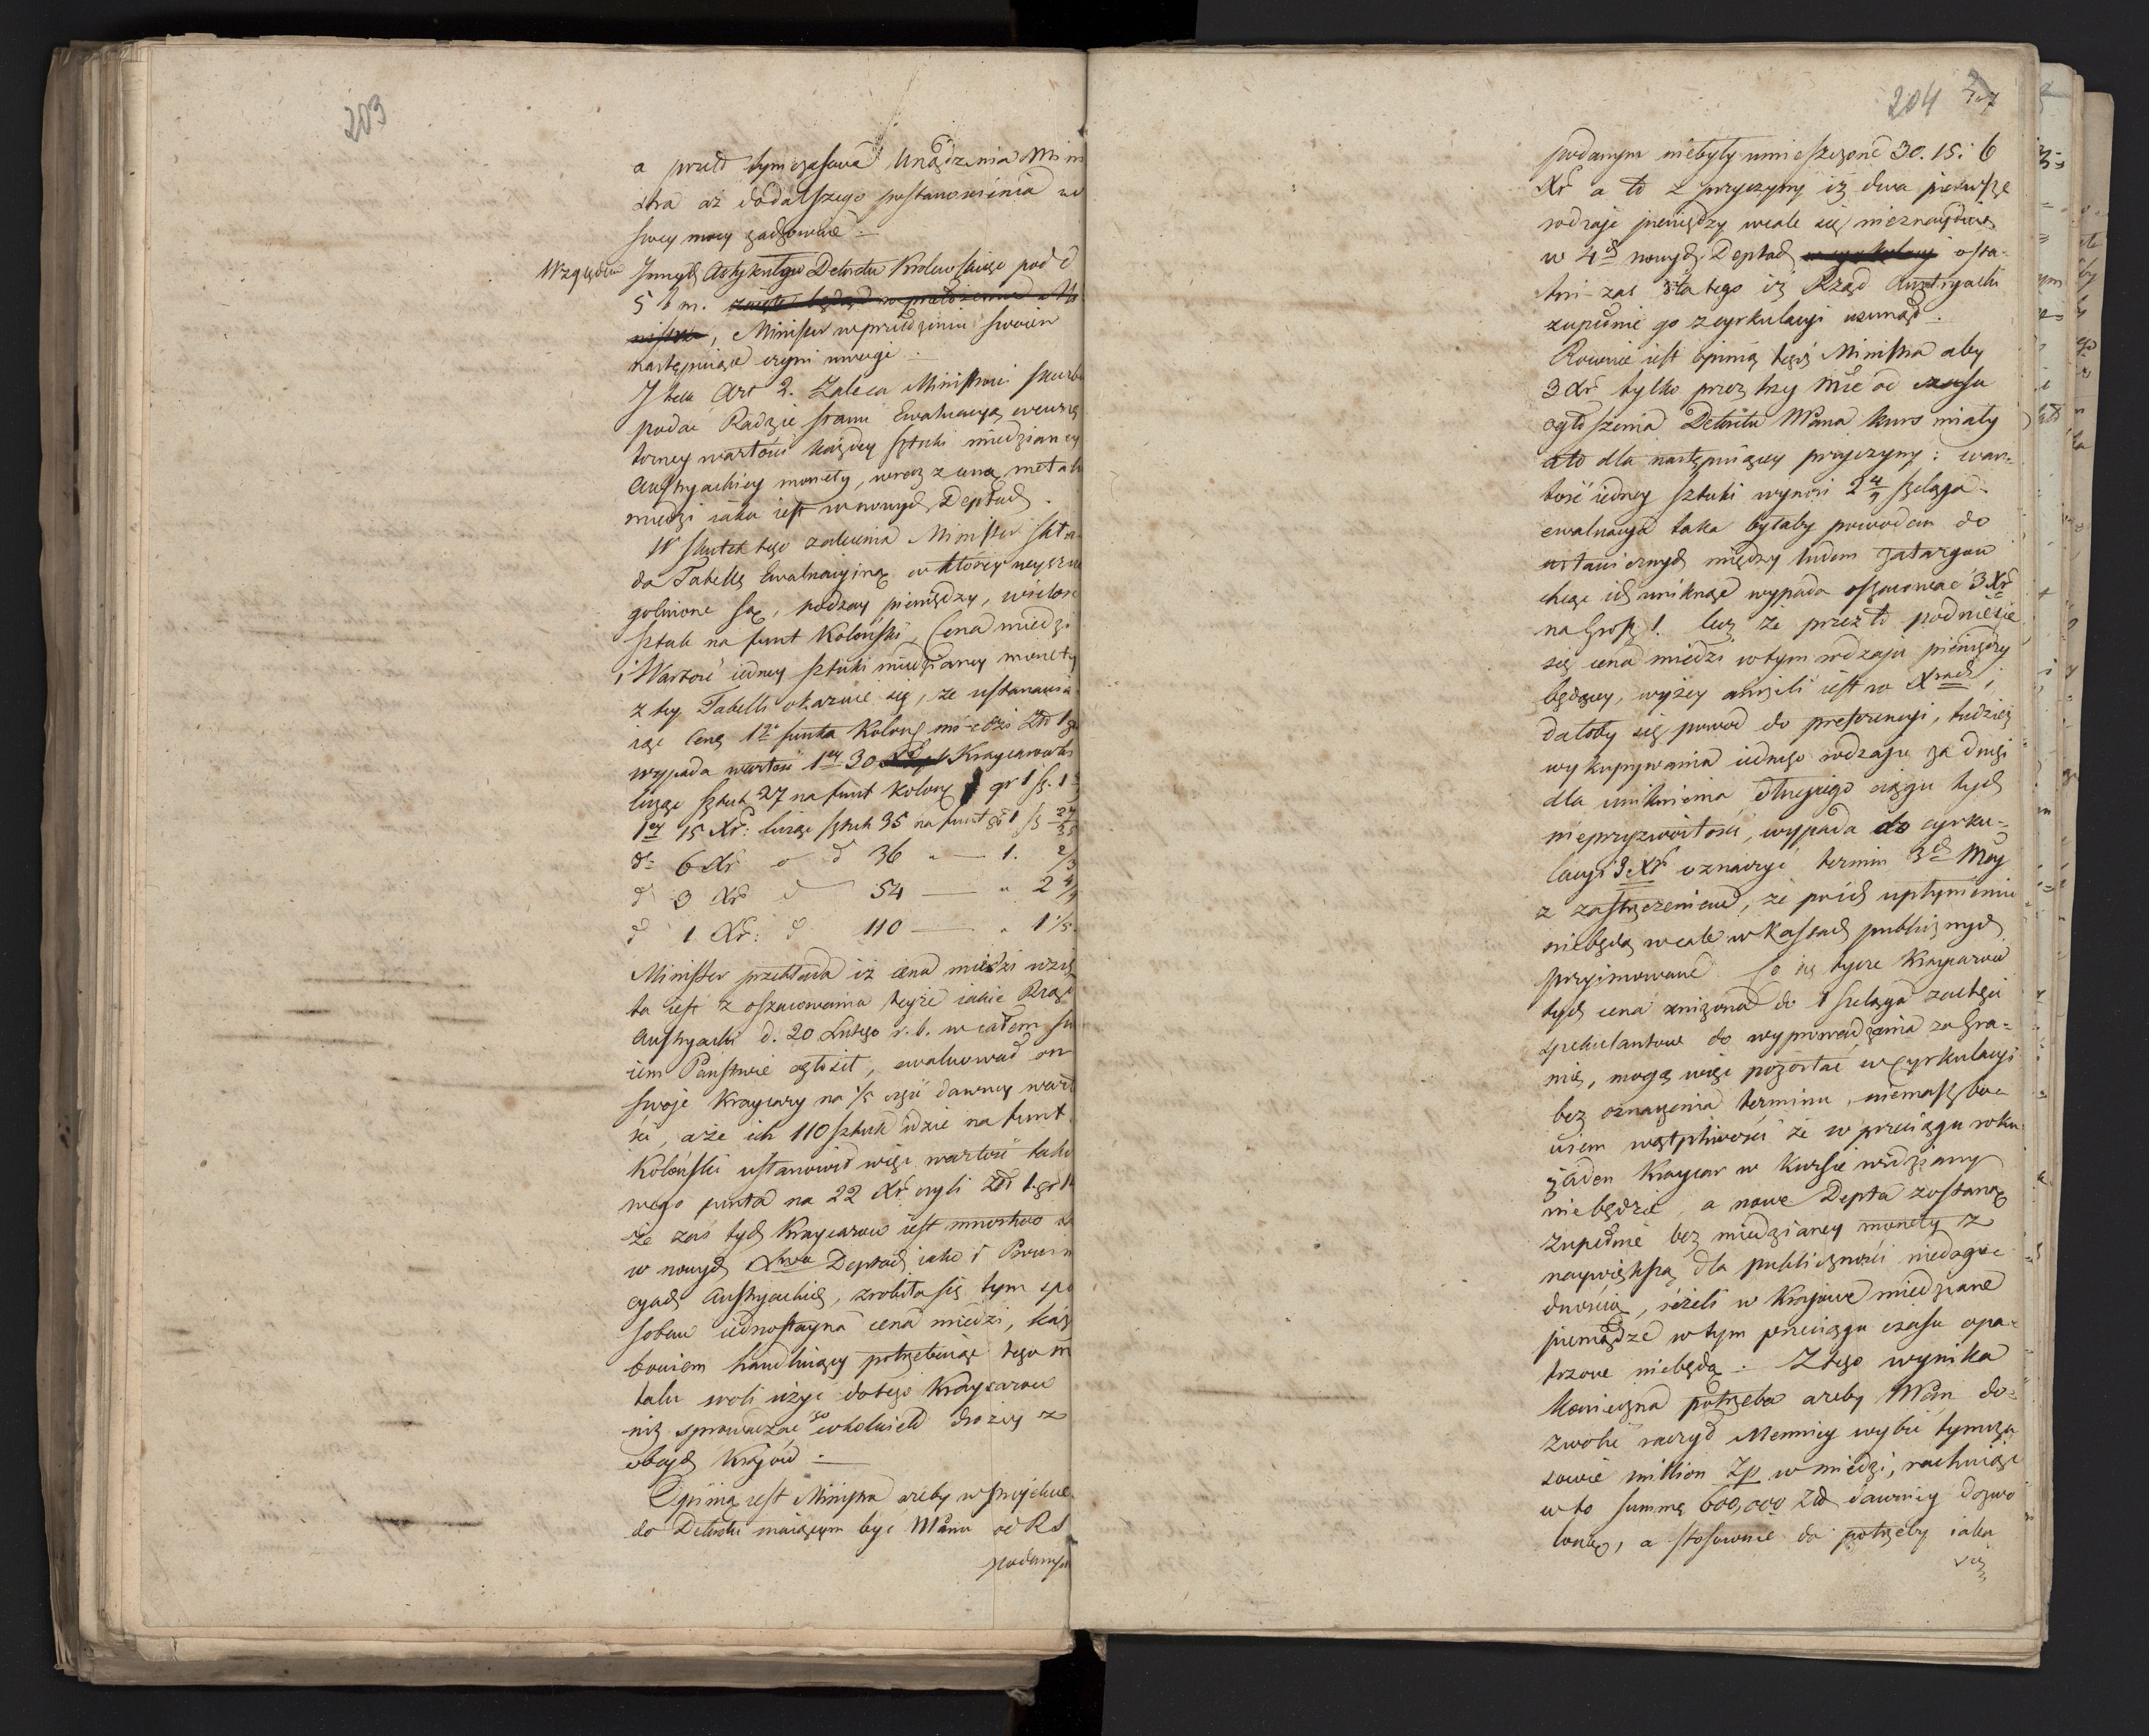 203
a przeto tymczasowe Urządzenia Min
stra aż do dalszego postanowienia w
swey mocy zachować
Względem Innych Artykułów Dekretu Krolewskiego pod d
5 b m. , Minister w przełożeniu swoim
następuiące czyni uwagi
I tak Art 2. Zaleca Ministrowi Skarbu
podać Radzie Stanu Ewaluacyą wewnę
trzney wartości każdey sztuki miedzianey
Austryackiey monety, wraz z ceną metalu
miedzi iaka iest w nowych Deptach.
W skutek tego zalecenia Minister skła
da Tabellę Ewaluacyiną w ktorey wyszcze
gulnione są, rodzay pieniędzy, wielość
sztuk na funt Koloński, Cena miedzi
i Wartość iedney sztuki miedzianey monety
z tey Tabelli okazuie się, że ustanawia
iąc Cenę 1go funta Kolońs miedzi Złt 1
wypada wartość 1ey 30 Kraycarowki
licząc sztuk 27 na funt Kolonś gr 1 sz. 1
1ey 15 Xr: licząc sztuk 35 na funt gr 1 sz 27/35
do 6 Xr d 36 " — 1. 2/3
d 3 Xr d 54 — " 2 4/9
d 1 Xr: d 110 — " 1 1/5.
Minister przekłada iż cena miedzi wzię
ta iest z oszacowania teyże iakie Rząd
Austryacki d. 20 Lutego r. b. w całem sw
iem Państwie ogłosił, ewaluował on
swoje Kraycary na 1/5 częś dawney warto
ści, a że ich 110 sztuk idzie na funt
Koloński ustanowił więc wartość tako
wego funta na 22 Xr czyli Złt 1 gr 1
że zaś tych Kraycarow iest mnostwo
w nowych Deptach iako i Prowin
cyach Austryackich, zrobiła się tym spo
sobem iednostayna cena miedzi, każ
bowiem handluiący potrzebuiąc tego m
talu woli użyć do tego Kraycarow
niż sprowadzać go drożey z
obcych Kraiów
Opinią iest Ministra ażeby w proiekcie
do Dekretu maiącym być NPanu od RS
podanym
204
podanym niebyły umieszczone 30. 15: 6
Xr a to z przyczyny iż dwa pierwsze
rodzaje pieniędzy wcale się nieznayduią
w 4ch nowych Deptach osta-
tni zaś dla tego iż Rząd Austryacki
zupełnie go z cyrkulacyi usunął.
Rownie iest opinią tegoż Ministra aby
3 Xr tylko przez trzy Mce od czasu
ogłoszenia Dekretu NPana kurs miały
a to dla następuiącey przyczyny: war-
tość iedney sztuki wynosi 2 4/9 szeląga
ewaluacya taka byłaby powodem do
ustawicznych między ludem zatargow
chcąc ich uniknąć wypada oszacować 3 Xr
na Grosz 1. lecz że przez to podniesie
się cena miedzi w tym rodzaju pieniędzy
będącey, wyżey aniżeli iest w Xrach;
dałoby się powod do preferencyi, tudzież
wykupywania iednego rodzaju za drugi
dla uniknienia długiego ciągu tych
nieprzyzwoitości, wypada do cyrku-
lacyi 3 Xr oznaczyć termin 3ch Mcy
z zastrzeżeniem, że po ich upłynieniu
niebędą wcale w Kassach publicznych
przyimowane. Co się tycze Kraycarow
tych cena zniżona do 1 szeląga zachęci
spekulantow do wyprowadzenia za Gra-
nicę, mogą więc pozostać w Cyrkulacyi
bez oznaczenia terminu, niemasz bo-
wiem wątpliwości że w przeciągu roku
żaden Kraycar w kursie widziany
niebędzie, a nowe Depta zostaną
zupełnie bez miedzianey monety z
naywiększą dla publiczności niedogo-
dnością, ieżeli w Kraiowe miedziane
pieniądze w tym przeciągu czasu opa-
trzone niebędą. Z tego wynika
konieczna potrzeba ażeby NPan do-
zwolić raczył Mennicy wybić tymcza
sowie million Zp w miedzi, rachuiąc
w to summę 600,000 Złt dawniey dozwo
loną, a stosownie do potrzeby iaka